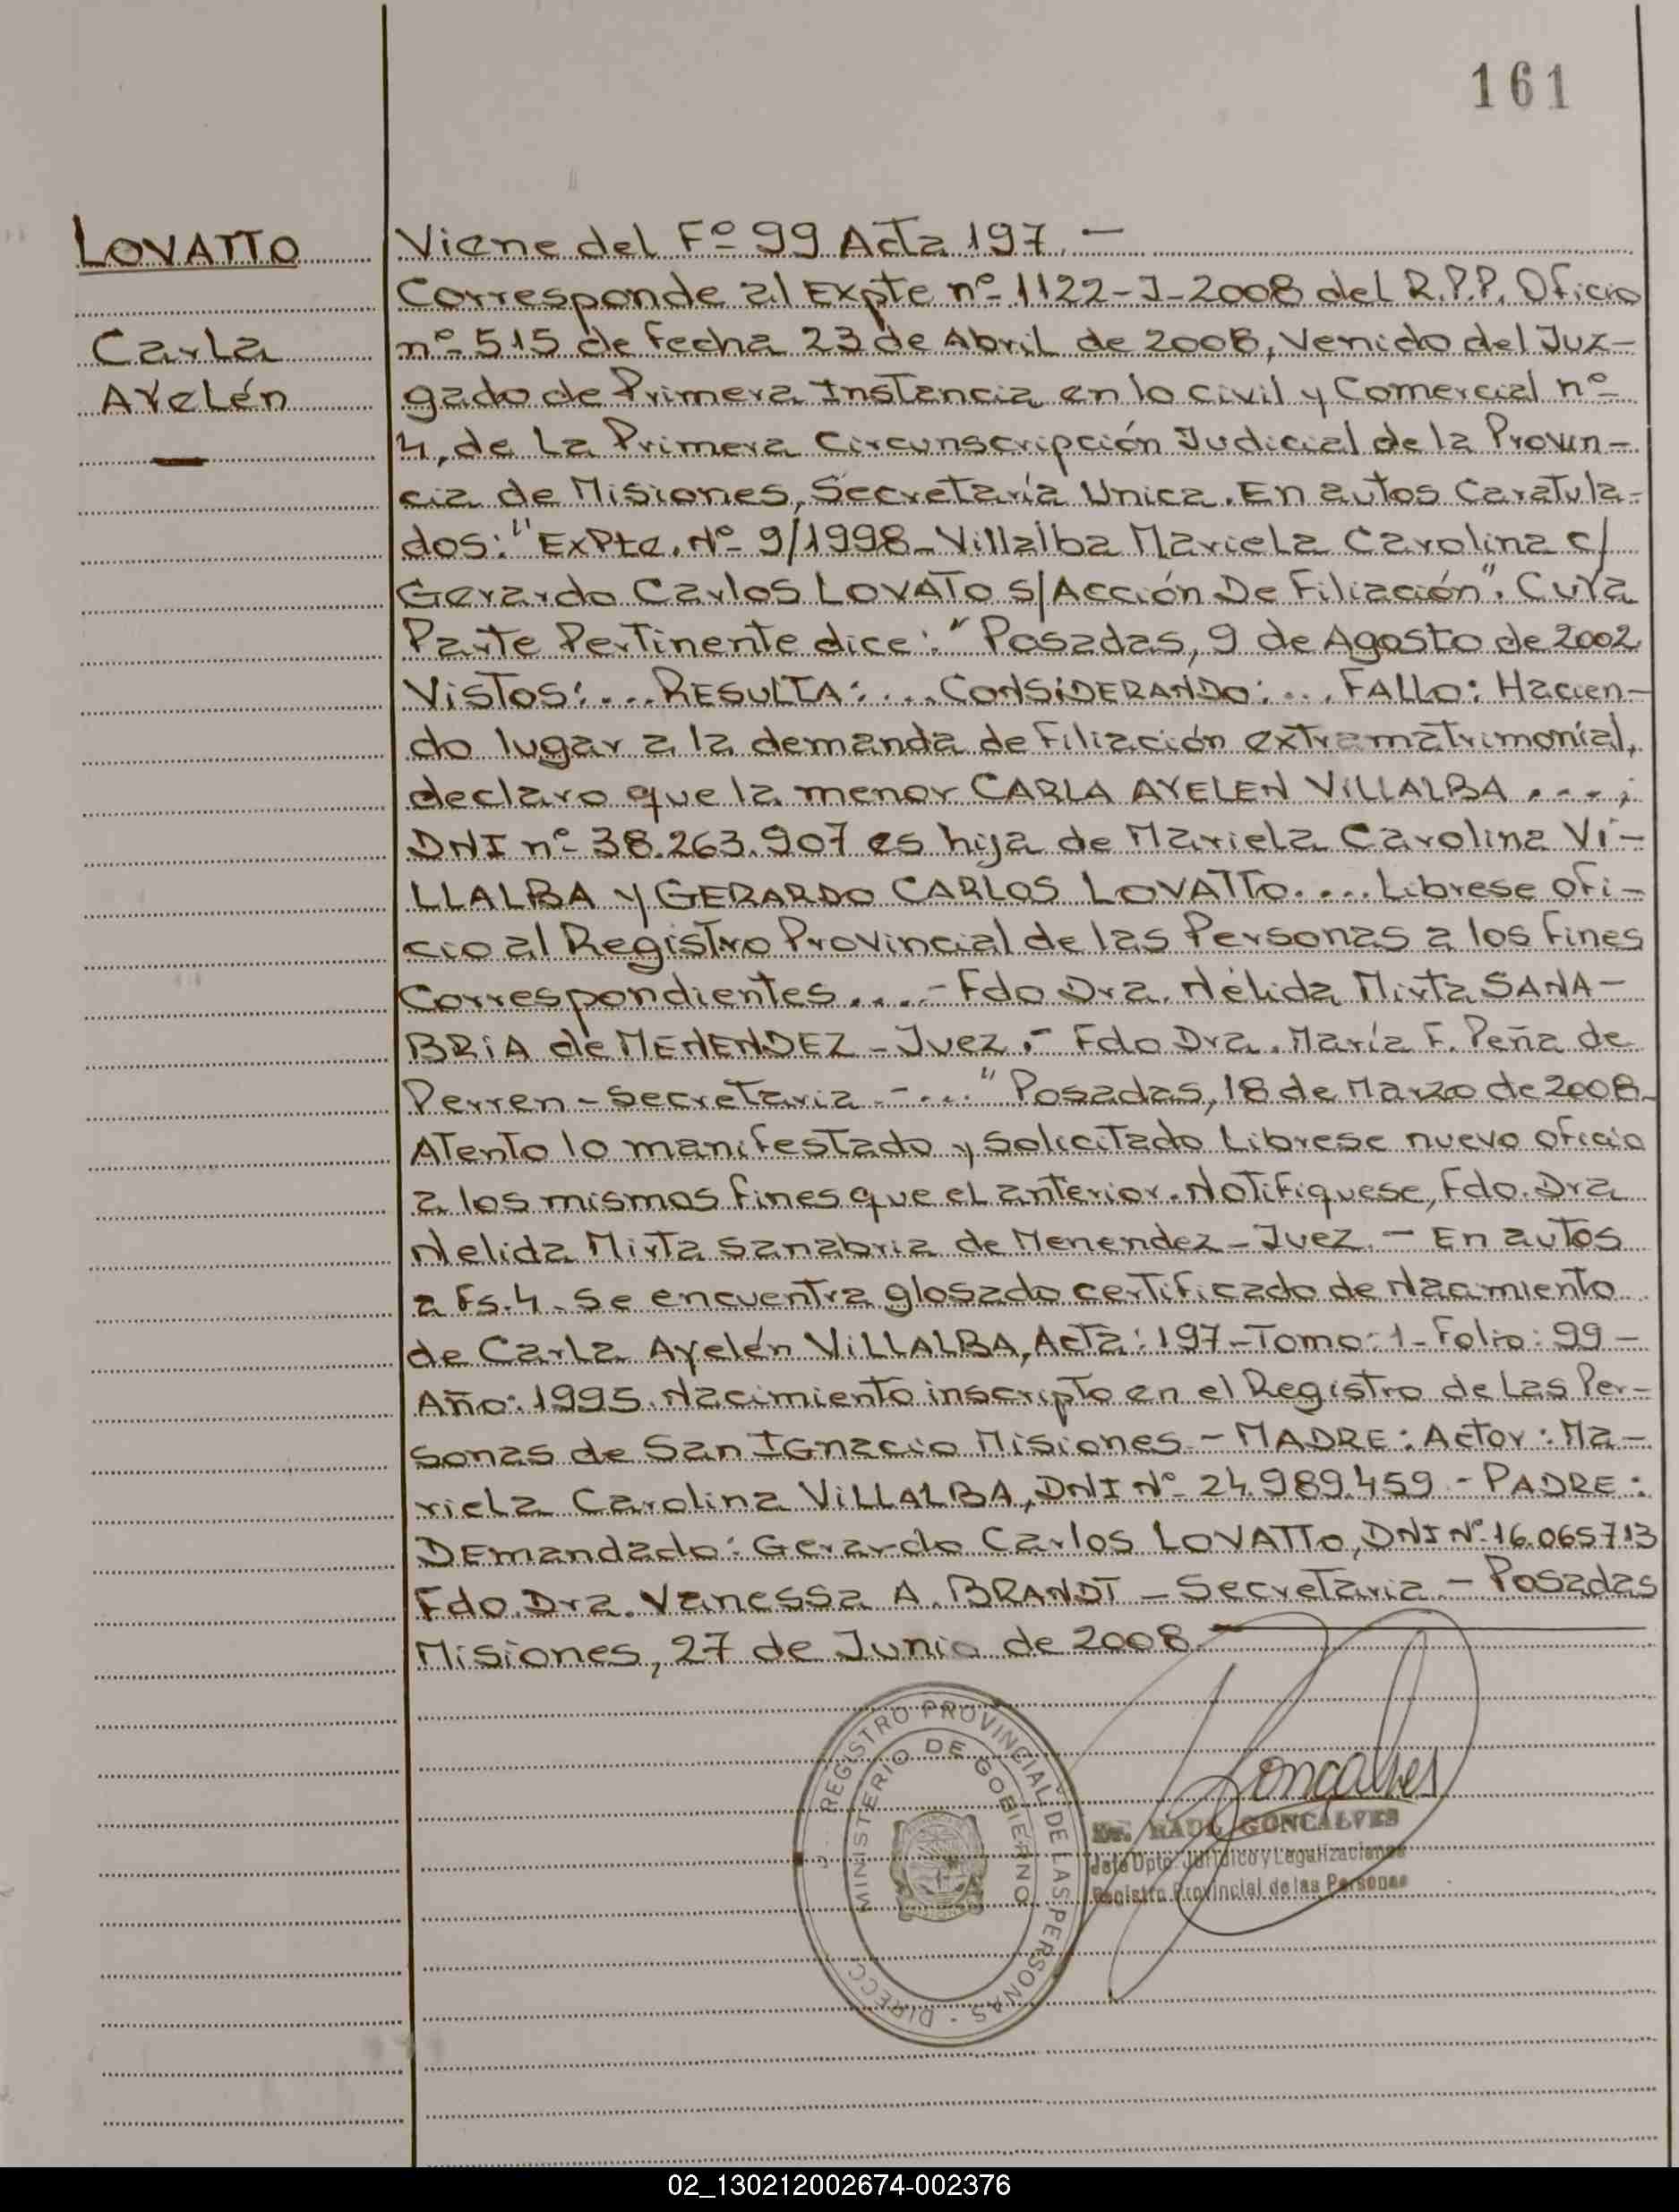 161
LOVATTO
Carla
AYelén
Viene del Fº 99 Acta 197.-
Corresponde al Expte nº 1122-J-2008 del R.P.P. Oficio
nº 515 de fecha 23 de Abril de 2008, Venido del Juz-
gado de Primera Instancia en lo civil y Comercial nº
4, de La Primera Circunscripción Judicial de la Provin-
cia de Misiones, Secretaría Unica. En autos Caratula-
dos: "ExPte. Nº 9/1998-Villalba Mariela Carolina c/
Gerardo Carlos LOVATO S/Acción De Filiación". CuYa
Parte Pertinente dice: "Posadas, 9 de Agosto de 2002
VISTOS:... RESULTA:... CONSiDERANDO:... FALLO: Hacien-
do lugar a la demanda de Filiación extramatrimonial,
declaro que la menor CARLA AYELEN ViLLALBA ....;
DNI nº 38.263.907 es hija de Mariela Carolina Vi-
LLALBA y GERARDO CARLOS LOVATTO.... Librese ofi-
cio al Registro Provincial de las Personas a los Fines
Correspondientes....- Fdo Dra. Nélida Mirta SANA-
BRiA de MENENDEZ - Juez.- Fdo Dra. María F. Peña de
Perren - Secretaria.-..." Posadas, 18 de Marzo de 2008.
Atento lo manifestado y Solicitado Librese nuevo oficio
a los mismos fines que el anterior. Notifiquese, Fdo. Dra
Nelida Mirta Sanabria de Menendez - Juez.- En autos
a Fs. 4. Se encuentra glosado certificado de Nacimiento
de Carla Ayelén ViLLALBA, Acta: 197-Tomo: 1-Folio: 99-
Año: 1995. Nacimiento inscripto en el Registro de Las Per-
sonas de San IGnacio Misiones - MADRE: Actor: Ma-
riela Carolina ViLLALBA, DNI Nº 24.989.459 - PADRE:
DEmandado: Gerardo Carlos LOVATTO, DNI Nº 16.065713
Fdo. Dra. Vanessa A. BRANDT - Secretaria.- Posadas
Misiones, 27 de Junio de 2008.-
REGISTRO PROVINCIAL DE LAS PERSONAS - DIRECC
MINISTERIO DE GOBIERNO
Goncalves
Dr. RAUL GONCALVES
Jefe Dpto. Jurídico y Legalizaciones
Registro Provincial de las Personas
02_130212002674-002376